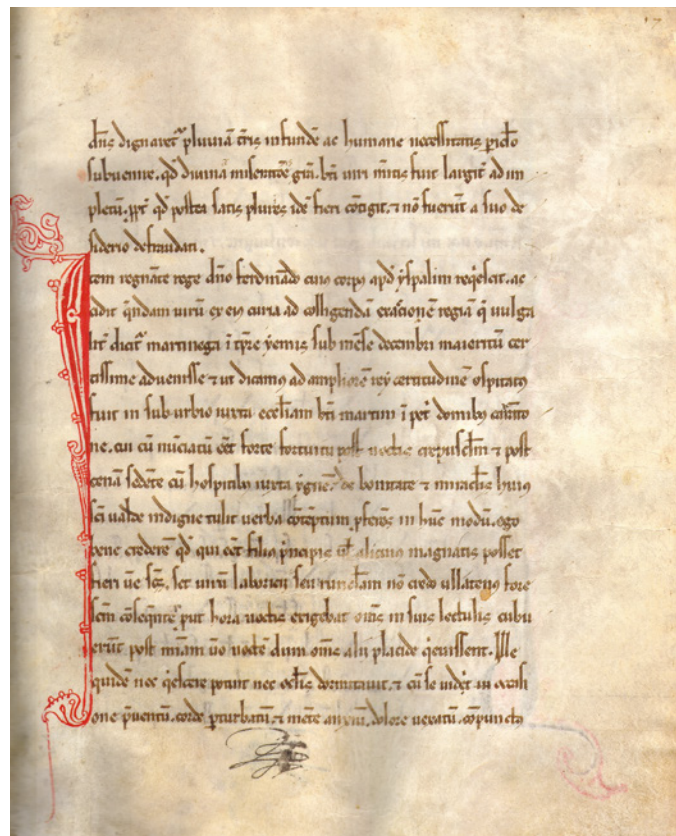 dn̄s dignaret᷑ pluuiā t̄ris infundē ac humane necessitatis piclo
subuenire. qd̄ diuina miseratōe grā. bt̄i uiri m̄itis fuit largit᷑ ad im
pletū. ppt̄ qd̄ postea satis plures idē fieri cōtigit. ⁊ nō fuerūt a suo de
siderio defraudati.
Item regnāte rege dn̄o ferdinādo cuiꝰ corpꝰ apd̄ yspalim reqiescit. ac
cidit q̄ndam uirū ex eiꝰ curia ad colligendā exacionē regiā q̄ uulga
lit᷑ dicit᷑ martinega ī tp̄re yemis sub mēse decembri maieritū cer
tissime aduenisse ⁊ ut dicamꝰ ad ampliorē rey certitudinē ospitatꝰ
fuit in sub urbio iuxta eccl̄iam bt̄i martini ī pet̄ domibꝰ
ne. cui cū nūciatū eēt forte fortuitu post noctis crepusclm̄ ⁊ post
cenā sedēte cū hospitibꝰ iuxta ygnē. de bonitate ⁊ miraclis huiꝰ
sc̄i ualde indigne tulit uerba cōtēptum p̄ferēs in hūc modū. ego
bene crederē qd̄ qui eēt filiꝰ p̄ncipis ul̄ alicuiꝰ magnatis posset
fieri ūe sc̄s. set unū laboricii seu runcl̄am nō credo ullatenꝰ fore
scm̄ cōseqēnte put hora noctis exigebat om̄s in suis lectulis cubu
erūt post mīam ūo noctē dum om̄s alii placide q̄euissent. Ille
quidē nec q̄escere potuit nec oclis dormitauit. ⁊ cū se uidet̄ in occasi
one p̄uentū. corde p̄turbatū. ⁊ mēte anxiū. dolore uexatū. cōpuncto